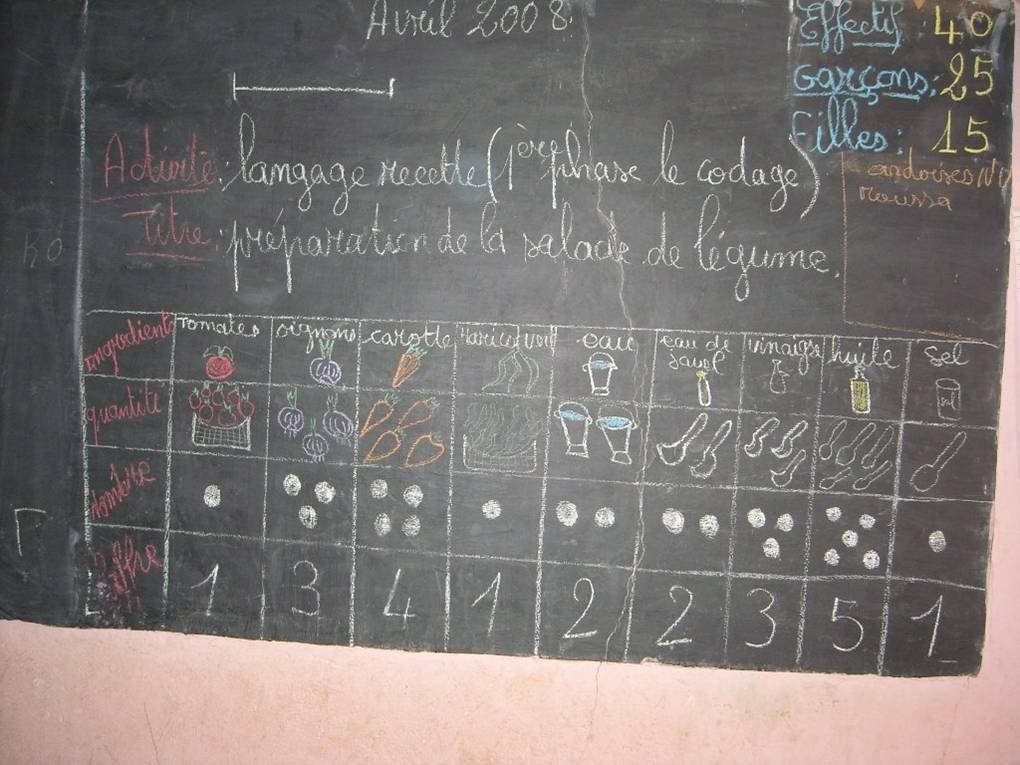 Avril 2008
Effectif : 40
Garçons : 25
Filles : 15
ardoises
moussa
Activité : langage recette (1ère phase le codage)
Titre : préparation de la salade de légume.
Ingrédients Tomates oignons carotte Haricot vert eau eau de javel vinaigre huile sel
sel
quantité
nombre
chiffre 1 3 4 1 2 2 3 5 1